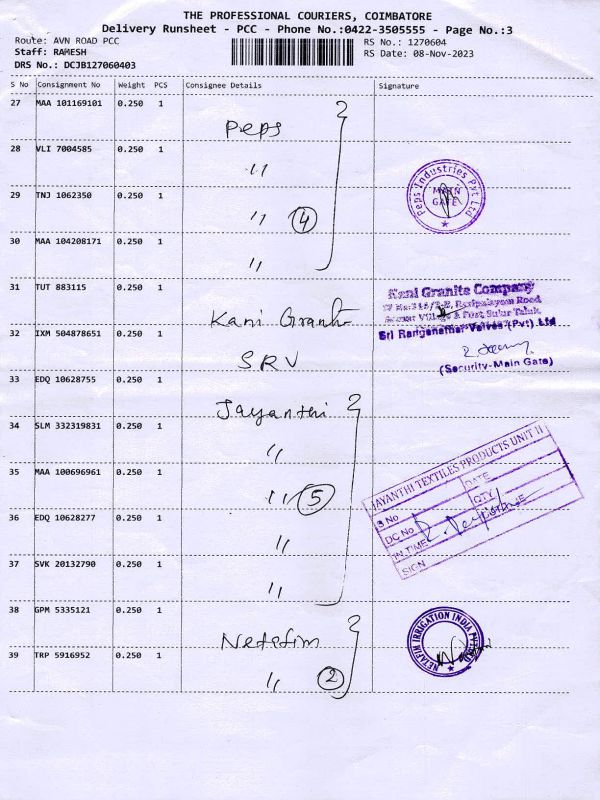 THE PROFESSIONAL COURIERS, COIMBATORE
Delivery Runsheet - PCC - Phone No.:0422-3505555 - Page No.:3
Route: AVN ROAD PCC
RS No.: 1270604
Staff: RAMESH
RS Date: 08-Nov-2023
DRS No.: DCJB127060403
S No Consignment No Weight PCS Consignee Details Signature
27 MAA 101169101 0.250 1 Peps
28 VLI 7004585 0.250 1 "
29 TNJ 1062350 0.250 1 " 4
Peps Industries Pvt Ltd
MAIN GATE
30 MAA 104208171 0.250 1 "
31 TUT 883115 0.250 1 Kani Granite
Kani Granite Company
32 IXM 504878651 0.250 1 SRV
Sri Ranganathar Valves (Pvt) Ltd
(Security-Main Gate)
33 EDQ 10628755 0.250 1 Jayanthi
34 SLM 332319831 0.250 1 "
35 MAA 100696961 0.250 1 " 5
JAYANTHI TEXTILES PRODUCTS UNIT II
S No DATE
DC No QTY
IN TIME
SIGN
36 EDQ 10628277 0.250 1 "
37 SVK 20132790 0.250 1 "
38 GPM 5335121 0.250 1 Netafim
NETAFIM IRRIGATION INDIA PVT LTD
39 TRP 5916952 0.250 1 " 2